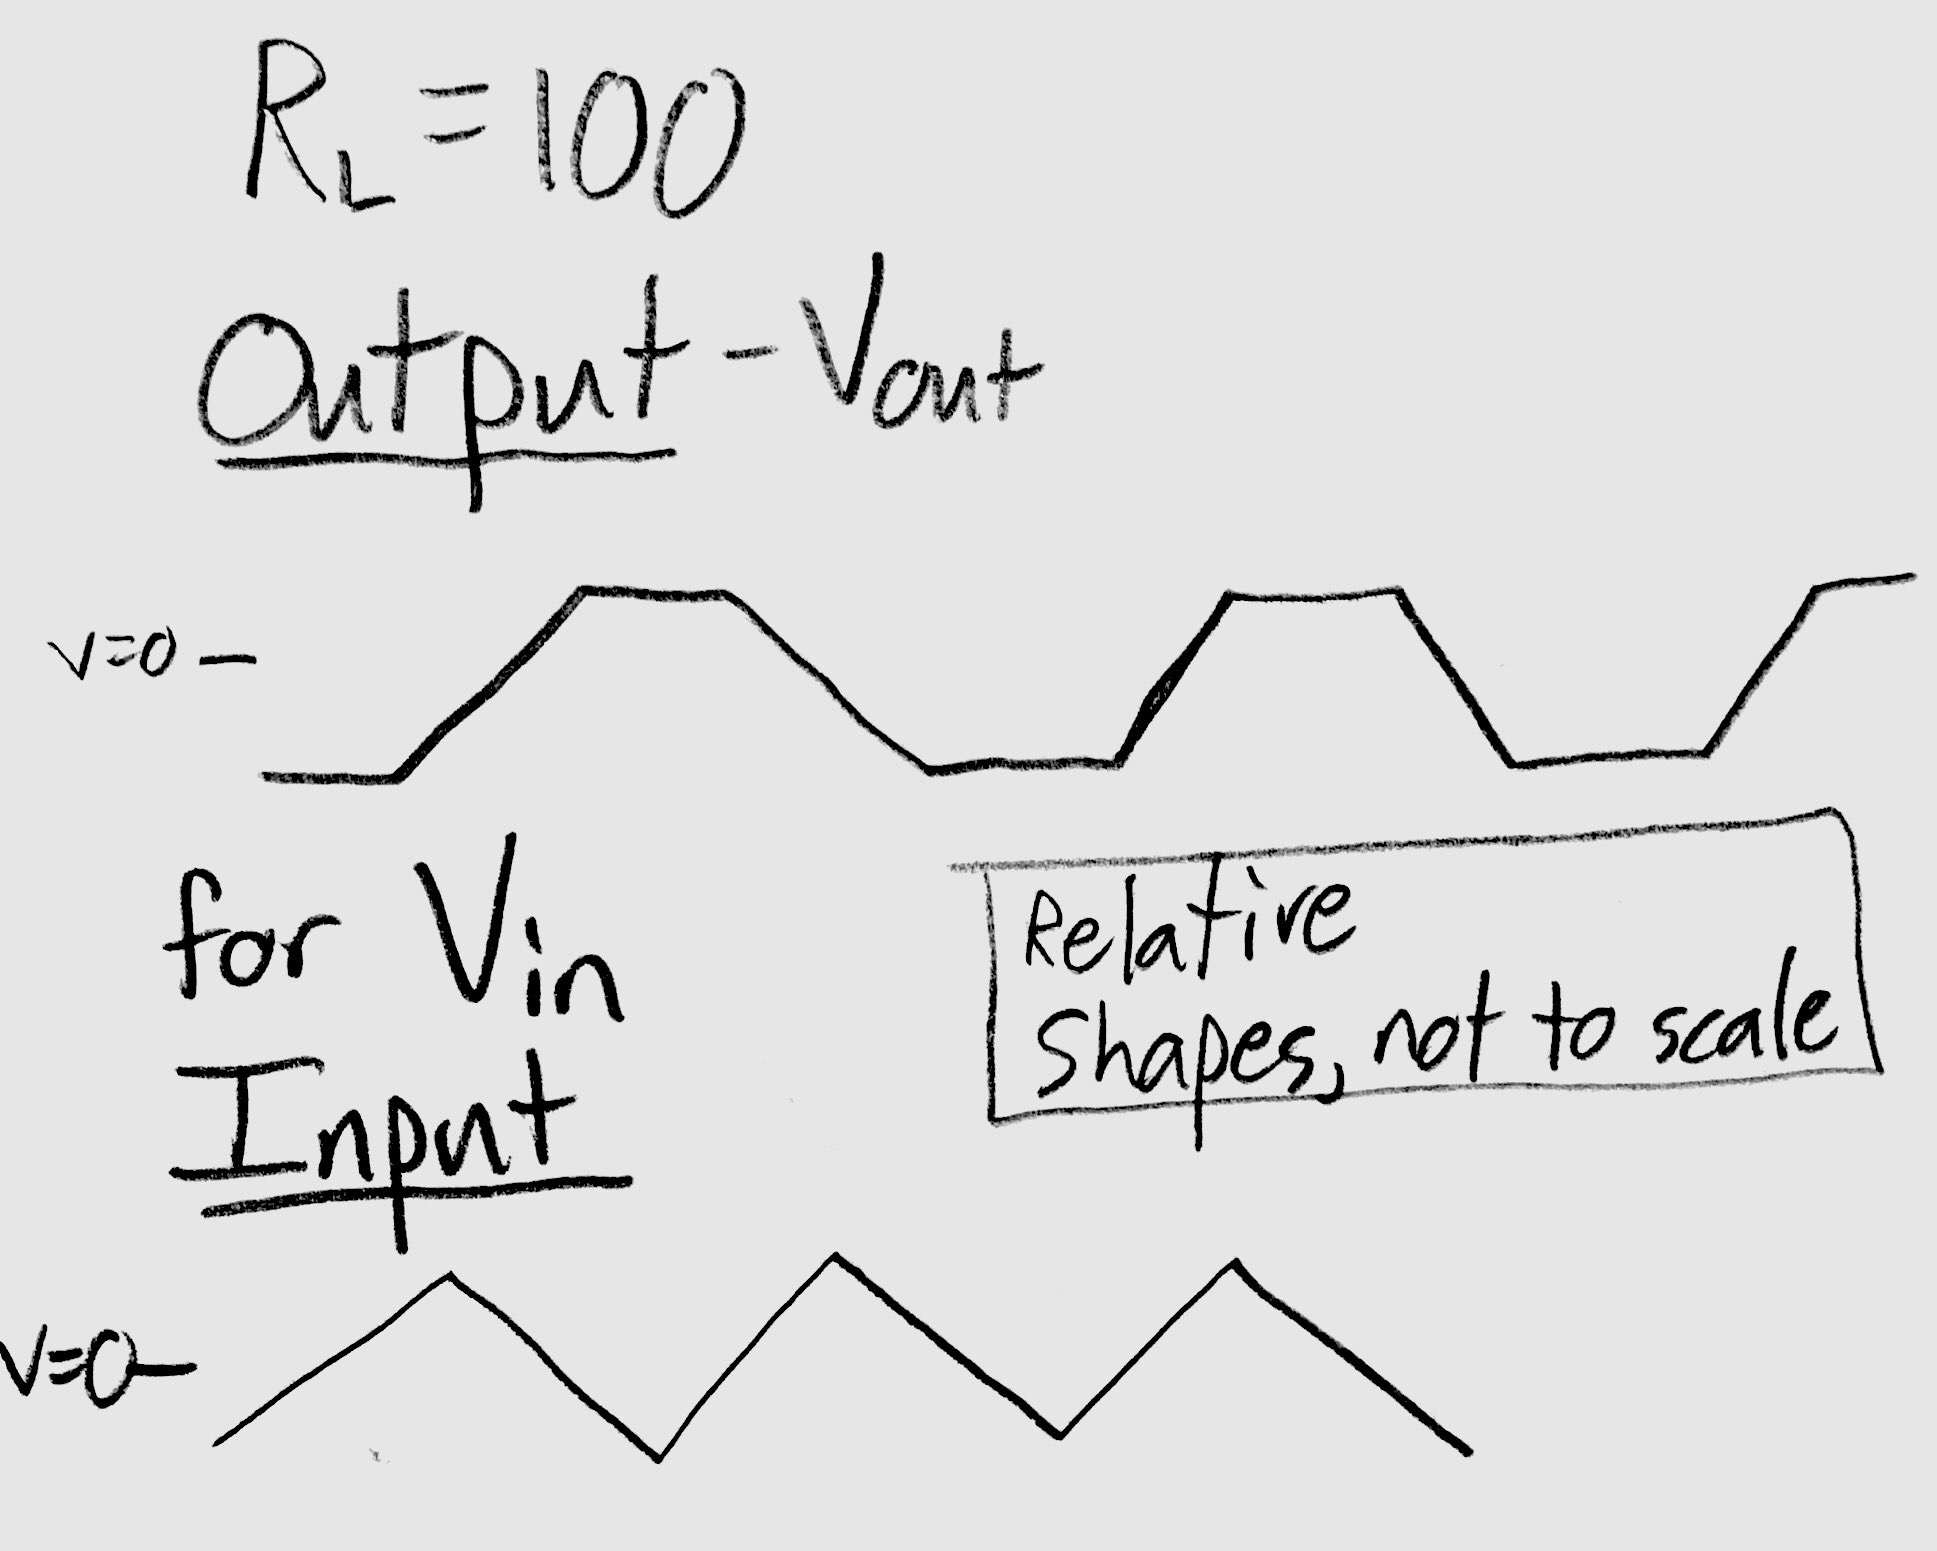 R_L = 100
Output - Vout
V=0 -
for Vin
Input
Relative
Shapes, not to scale
V=0-